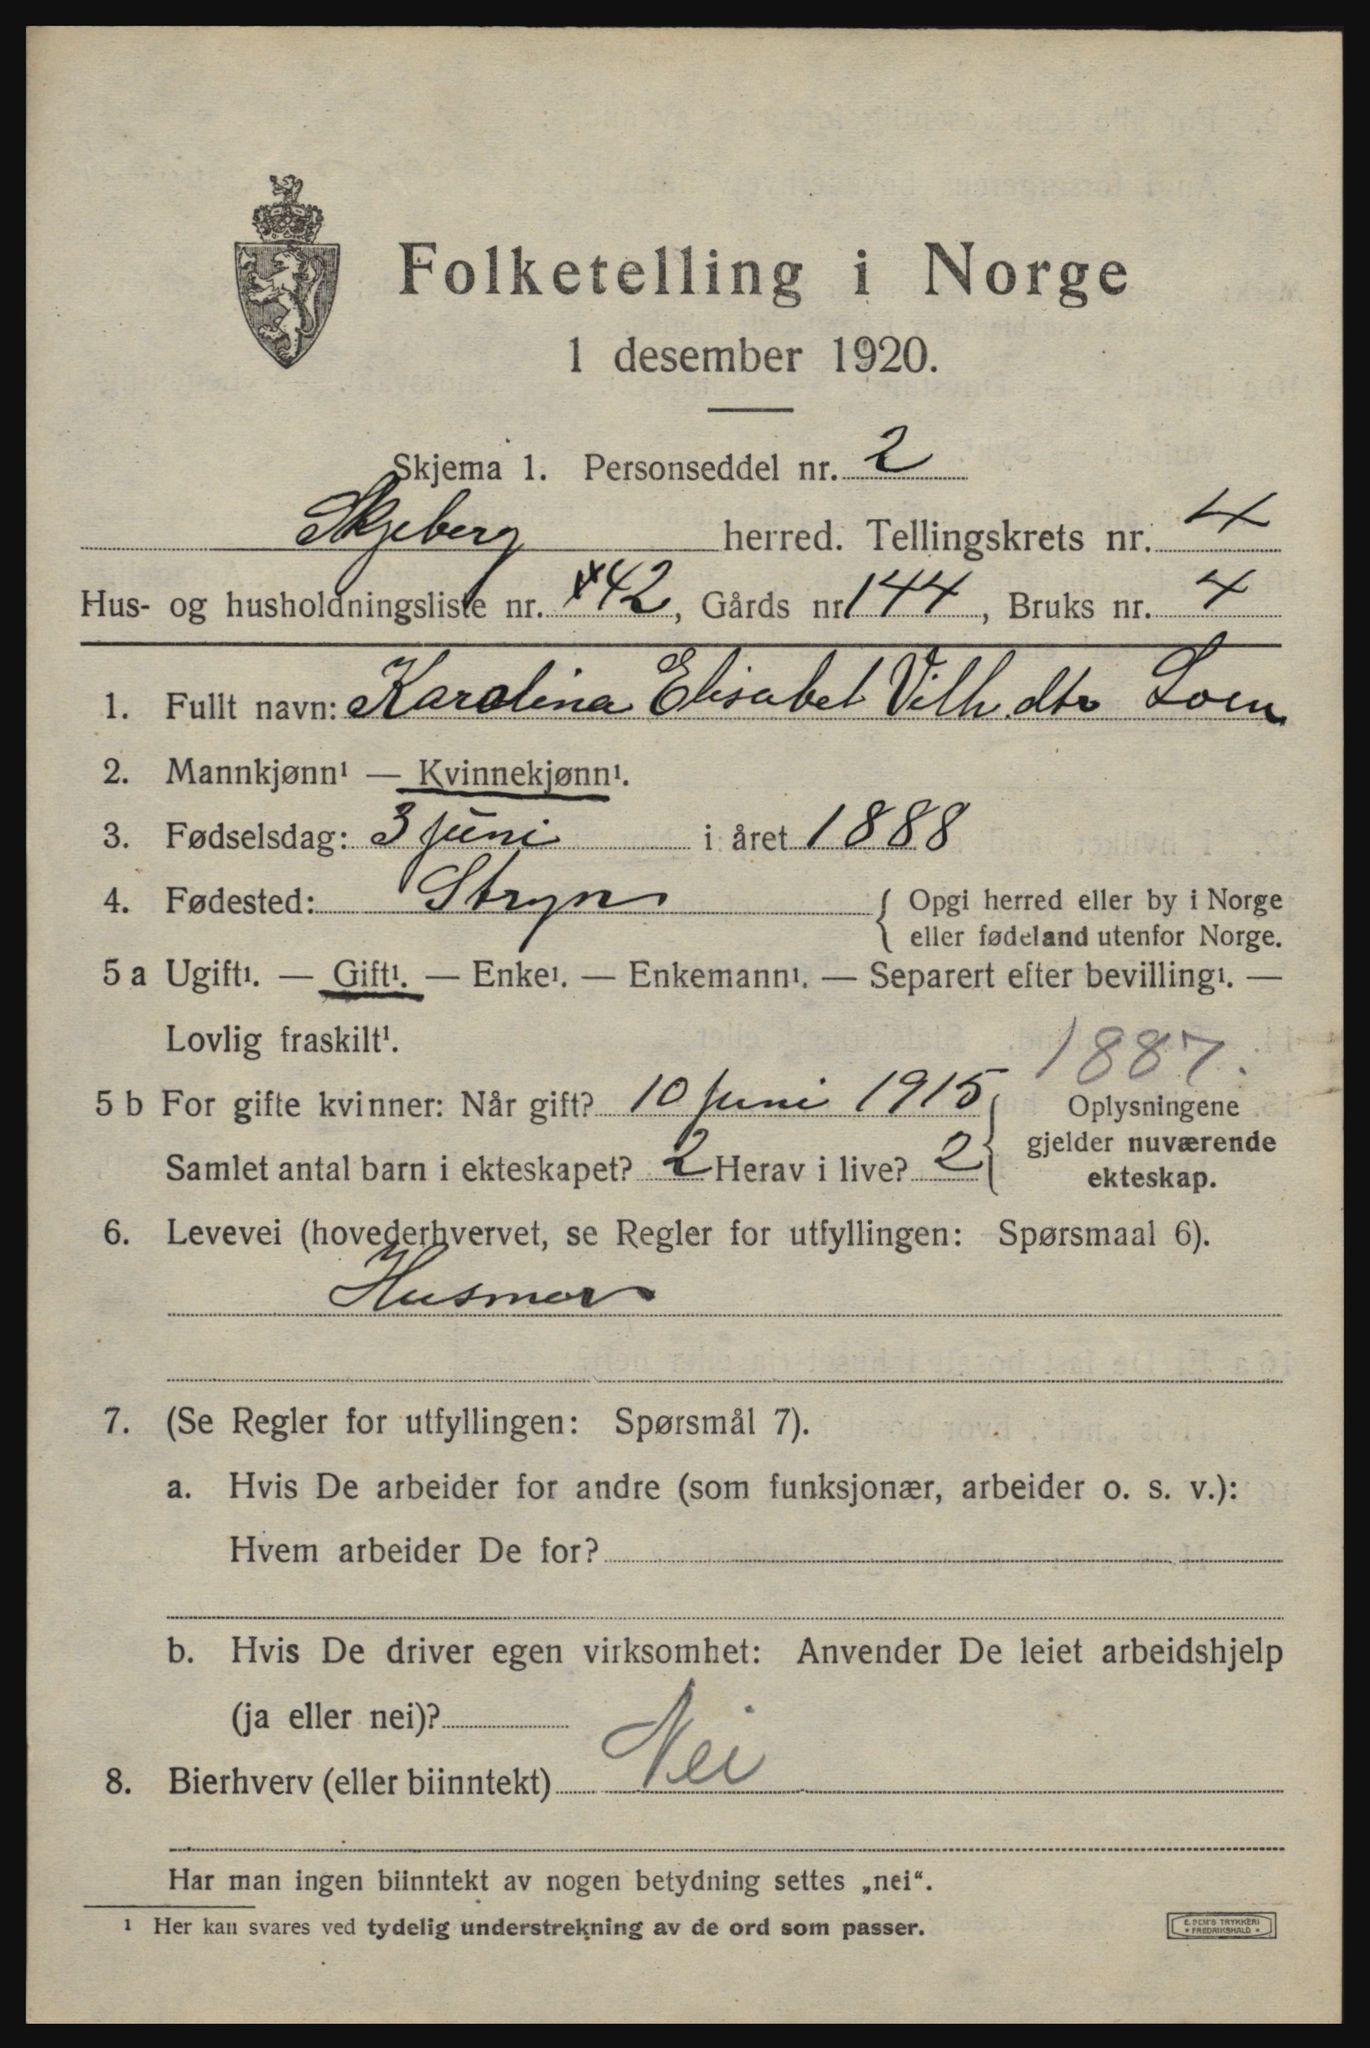 Folketelling i Norge
1 desember 1920.
Skjema 1. Personseddel nr. 2
Skjeberg herred. Tellingskrets nr. 4
Hus- og husholdningsliste nr. 42, Gårds nr. 144, Bruks nr. 4
1. Fullt navn: Karolina Elisabet Vilh. dtr Loen
2. Mannkjønn¹ — Kvinnekjønn¹.
3. Fødselsdag: 3 juni i året 1888
4. Fødested: Stryn { Opgi herred eller by i Norge
eller fødeland utenfor Norge.
5 a Ugift¹. — Gift¹. — Enke¹. — Enkemann¹. — Separert efter bevilling¹. —
Lovlig fraskilt¹.
1887.
5 b For gifte kvinner: Når gift? 10 juni 1915 { Oplysningene
gjelder nuværende
Samlet antal barn i ekteskapet? 2 Herav i live? 2
ekteskap.
6. Levevei (hovederhvervet, se Regler for utfyllingen: Spørsmaal 6).
Husmor
7. (Se Regler for utfyllingen: Spørsmål 7).
a. Hvis De arbeider for andre (som funksjonær, arbeider o. s. v.):
Hvem arbeider De for?
b. Hvis De driver egen virksomhet: Anvender De leiet arbeidshjelp
(ja eller nei)?
8. Bierhverv (eller biinntekt) Nei
Har man ingen biinntekt av nogen betydning settes „nei“.
¹ Her kan svares ved tydelig understrekning av de ord som passer.
E. SEM'S TRYKKERI
* FREDRIKSHALD *